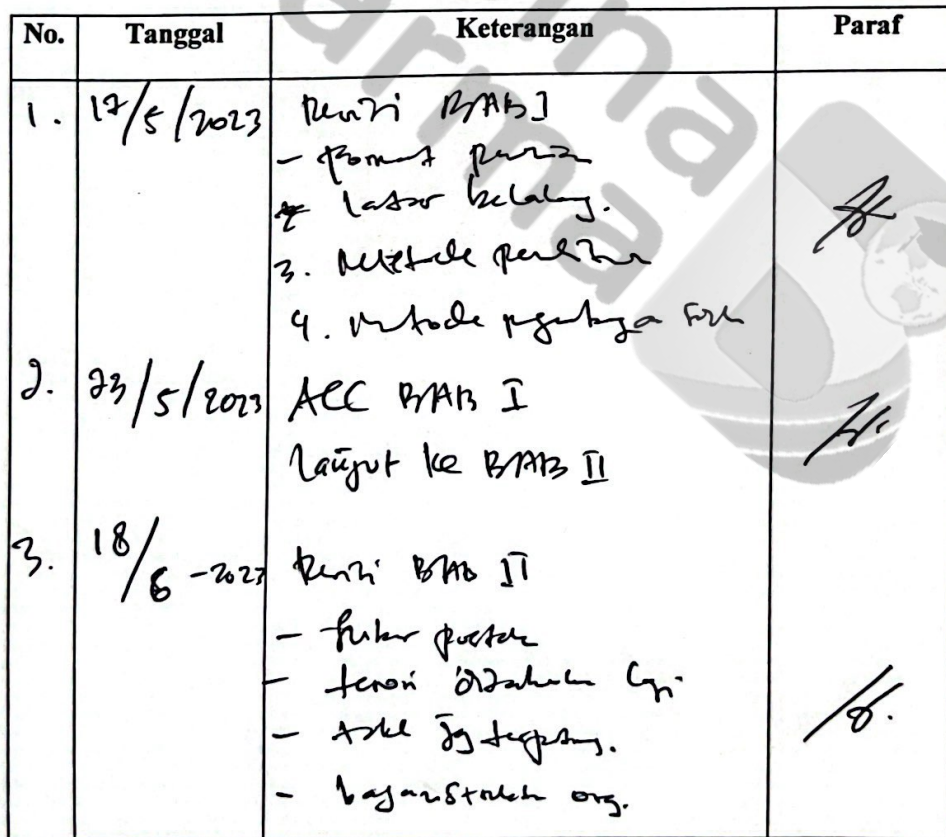 No. Tanggal Keterangan Paraf
1. 17/5/2023 Revisi BAB I
- Format
latar belakang.
3. Metode
4. Metode
2. 23/5/2023 ACC BAB I
lanjut ke BAB II
3. 18/6-2023 Revisi BAB II
- pustaka
- teori ditambah lagi
- yg
- bagan struktur org.